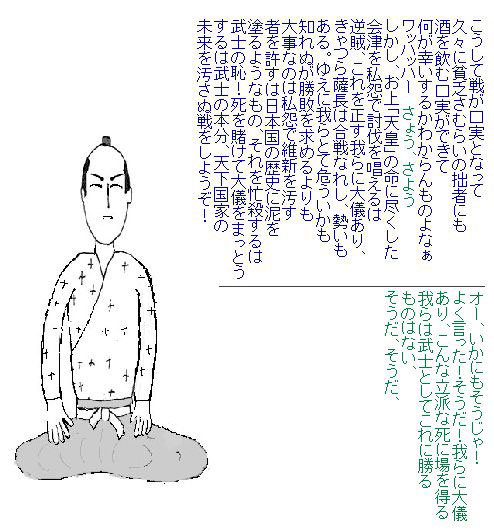 こうして戦が口実となって
久々に貧乏さむらいの拙者にも
酒を飲む口実ができて
何が幸いするかわからんものよなぁ
ワッハッハー　さよう、さよう
しかし、お上「天皇」の命に尽くした
会津を私怨で討伐を唱えるは
逆賊、これを正す我らに大儀あり、
きゃつら薩長は合戦なれし、勢いも
ある。ゆえに我らとて危ういかも
知れぬが勝敗を求めるよりも
大事なのは私怨で維新を汚す
者を許すは日本国の歴史に泥を
塗るようなもの、それを忙殺するは
武士の恥！死を賭けて大儀をまっとう
するは武士の本分、天下国家の
未来を汚さぬ戦をしようぞ！
オー、いかにもそうじゃ！
よく言ったー！そうだ！我らに大儀
あり、こんな立派な死に場を得る
我らは武士としてこれに勝る
ものはない、
そうだ、そうだ、